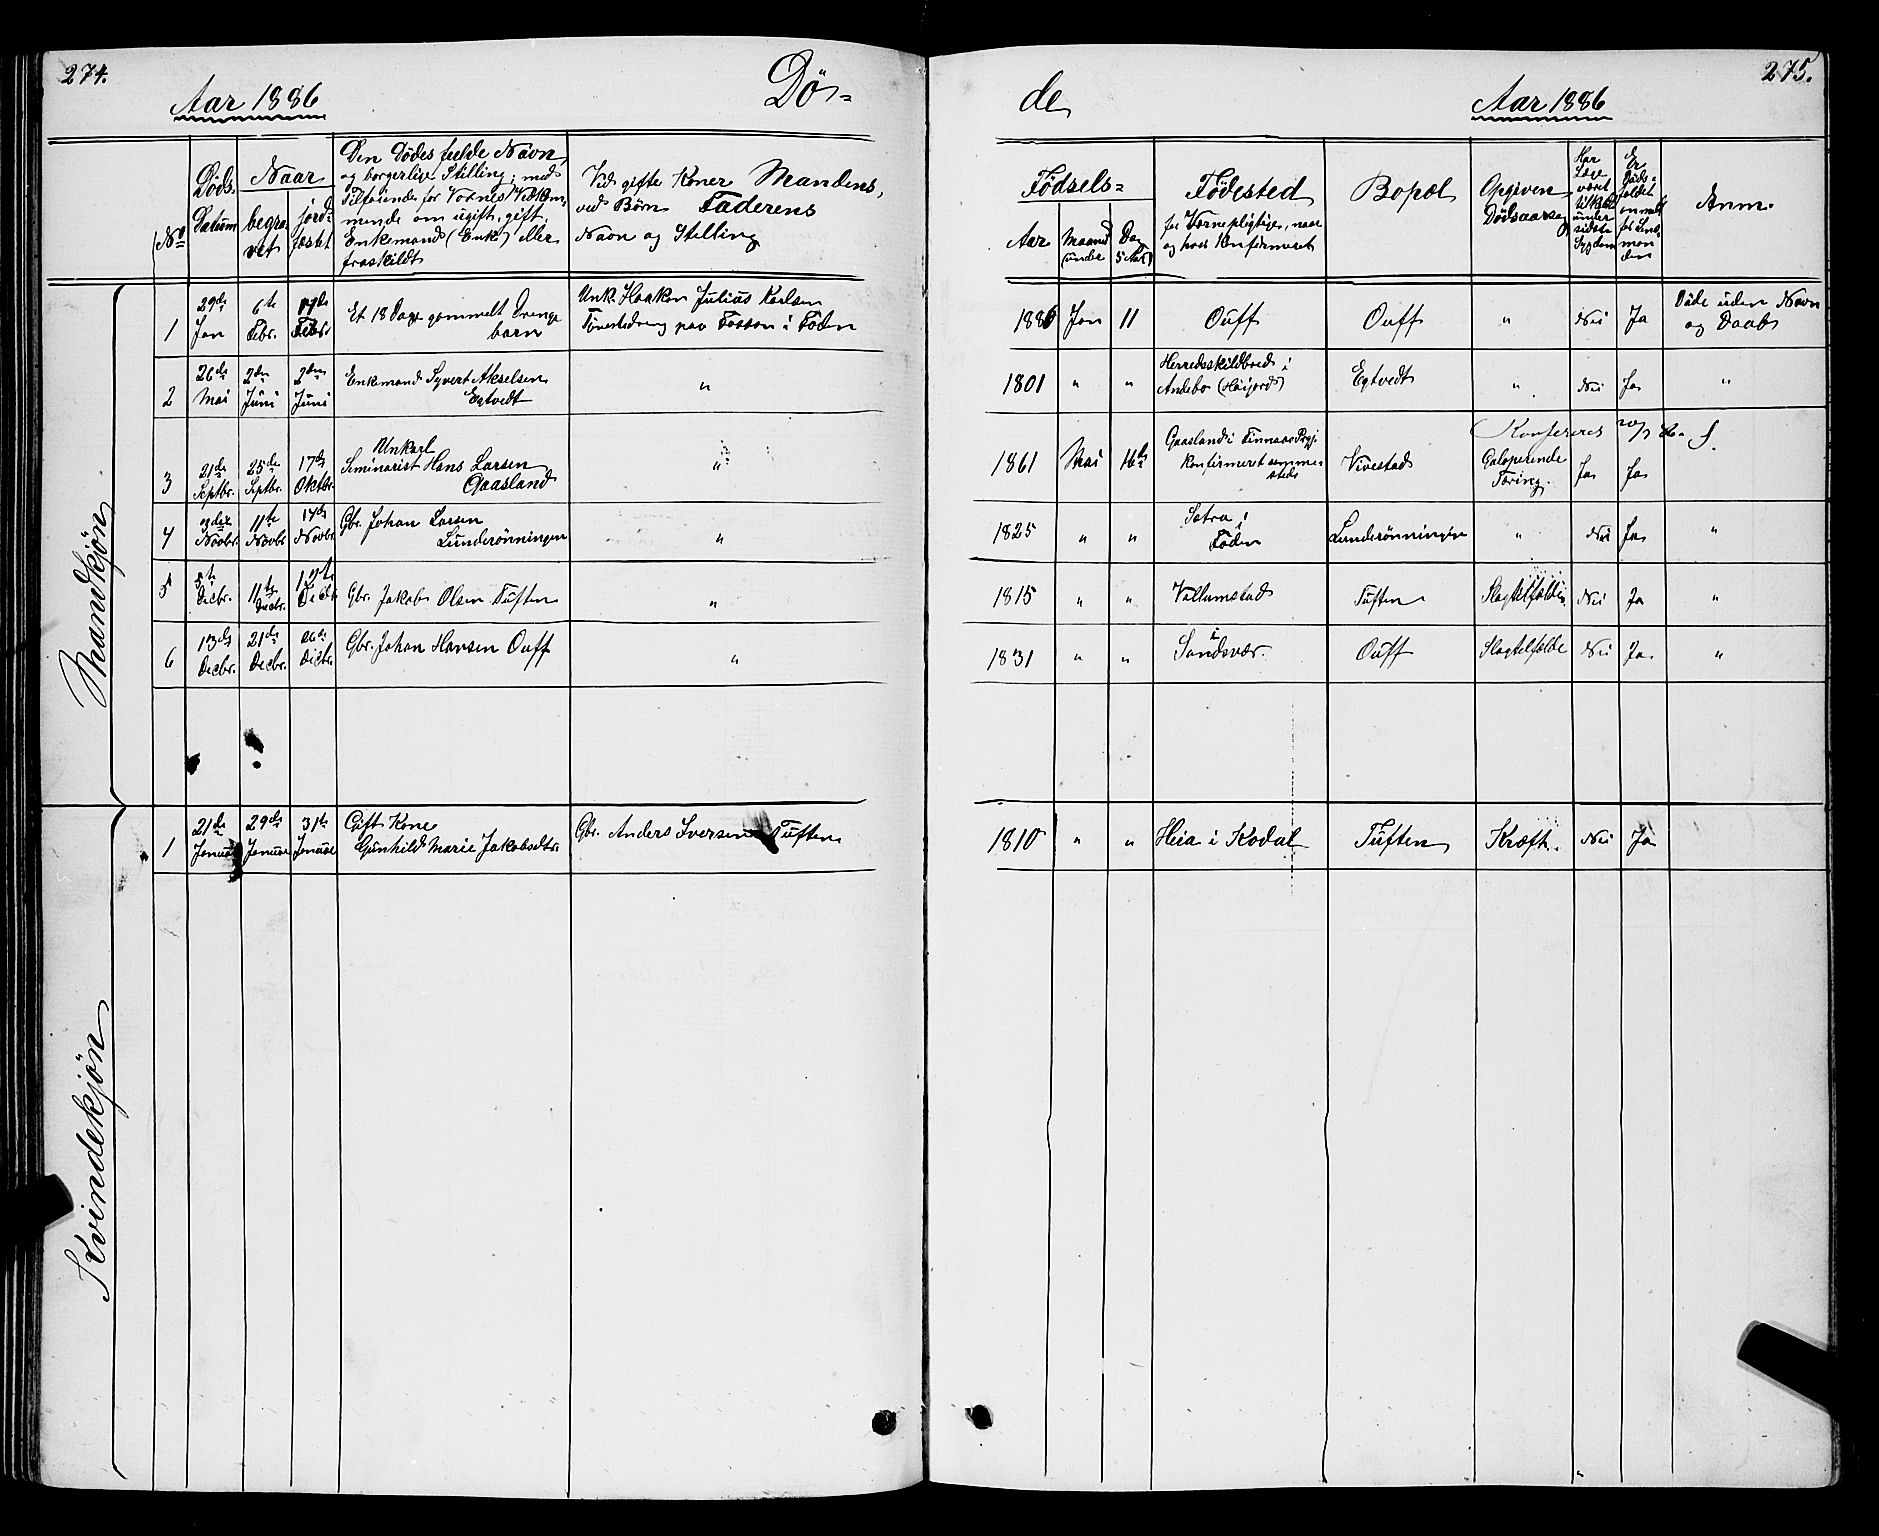 274.
Aar 1886
Dø-
No
Døds
Datum
Naar
begra-
vet
jord-
fæstet
Den Dødes fulde Navn,
og borgerlige Stilling; med
Tilføiende for Voxnes Vedkom-
mende om ugift, gift,
Enkemand (Enke) eller
fraskildt
Ved gifte Koner Mandens,
ved Børn Faderens
Navn og Stilling
Mandkjøn
1
29de
Jan
6te
Febr.
17de
Febr.
Et 18 Dage gammelt Drenge
barn
Unk. Haaken Julius Karlsen
Tjenestedreng paa Fossan i Foden
2
26de
Mai
2den
Juni
2den
Juni
Enkemand Syvert Akselsen
Egtvedt
"
3
21de
Septbr.
25de
Septbr.
17de
Oktbr.
Unkarl
Seminarist Hans Larsen
Gaasland
"
4
3die
Novbr.
11te
Novbr
14de
Novbr
Gbr. Johan Larsen
Lunderønningen
"
5
5te
Decbr.
11te
Decbr.
Decbr.
Gbr. Jakob Olsen Tuften
"
6
13de
Decbr.
21de
Decbr.
26de
Decbr.
Gbr. Johan Hansen Ouff
"
Kvindekjøn
1
21de
Januar
29de
Januar
31te
Januar
Gift Kone
Gunhild Marie Jakobsdtr.
Gbr. Anders Iversen Tuften
275.
de
Aar 1886
Fødsels-
Aar
Maaned
(under
Dag
5 Aar)
Fødested
for Værnepligtige, naar
og hvor Konfirmeret
Bopæl
Opgiven
Dødsaarsag
Har
Læge
været
tilkaldt
under
sidste
Sygdom
Er
Døds-
faldet
anmeldt
for Lens-
man
den
Anm.
1886
Jan
11
Ouff
Ouff
"
Nei
Ja
Døde uden Navn
og Daab
1801
"
"
Herredsskildbred i
Andebo (Høijord)
Egtvedt
"
Nei
Ja
"
1861
Mai
16de
Gaasland i
Konfirmeret samme-
steds
Vivestad
Galoperende
Tæring.
Ja
Ja
1825
"
"
Sætra i
Foden
Lunderønningen
"
Nei
Ja
"
1815
"
"
Vallumstad
Tuften
Slagtilfælde
Nei
Ja
"
1831
"
"
i
Sandsvær.
Ouff
Slagtilfælde
Nei
Ja
"
1810
"
"
Heia i Kodal
Tuften
Kræft.
Nei
Ja